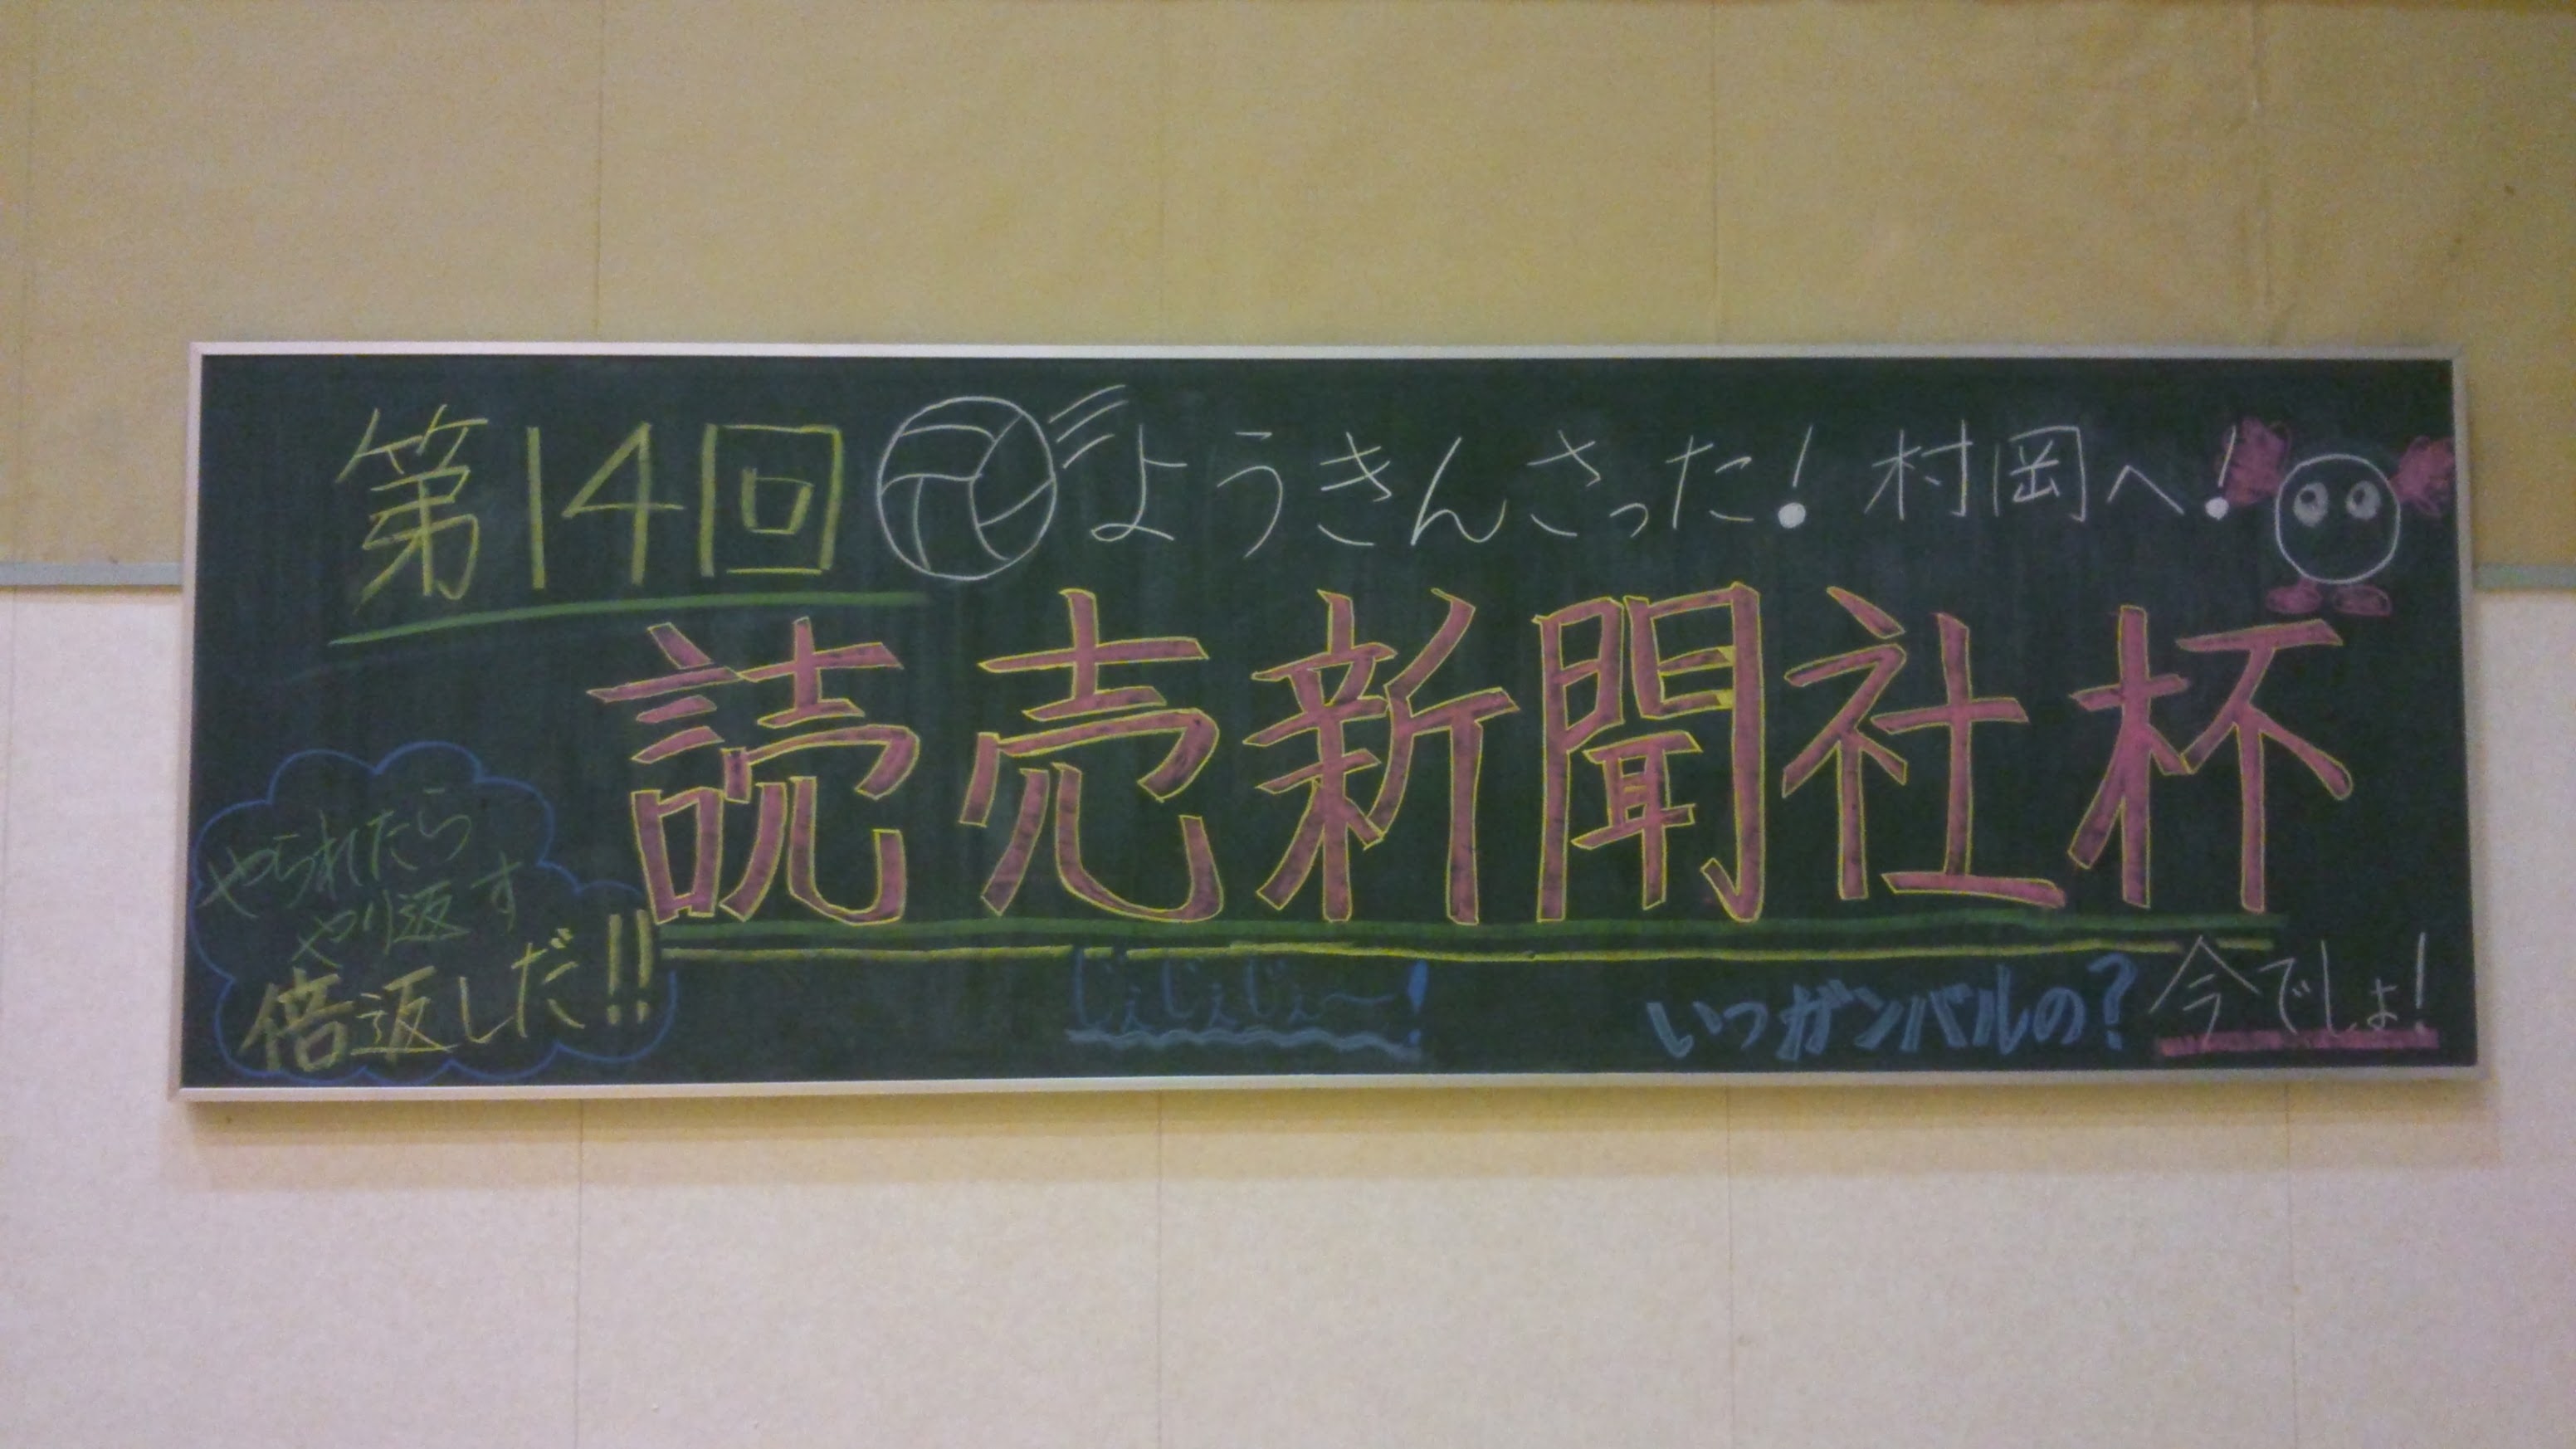 第14回
ようきんさった！村岡へ！
読売新聞社杯
やられたら
やり返す
倍返しだ!!
じぇじぇじぇ〜！
いつガンバルの？今でしょ！